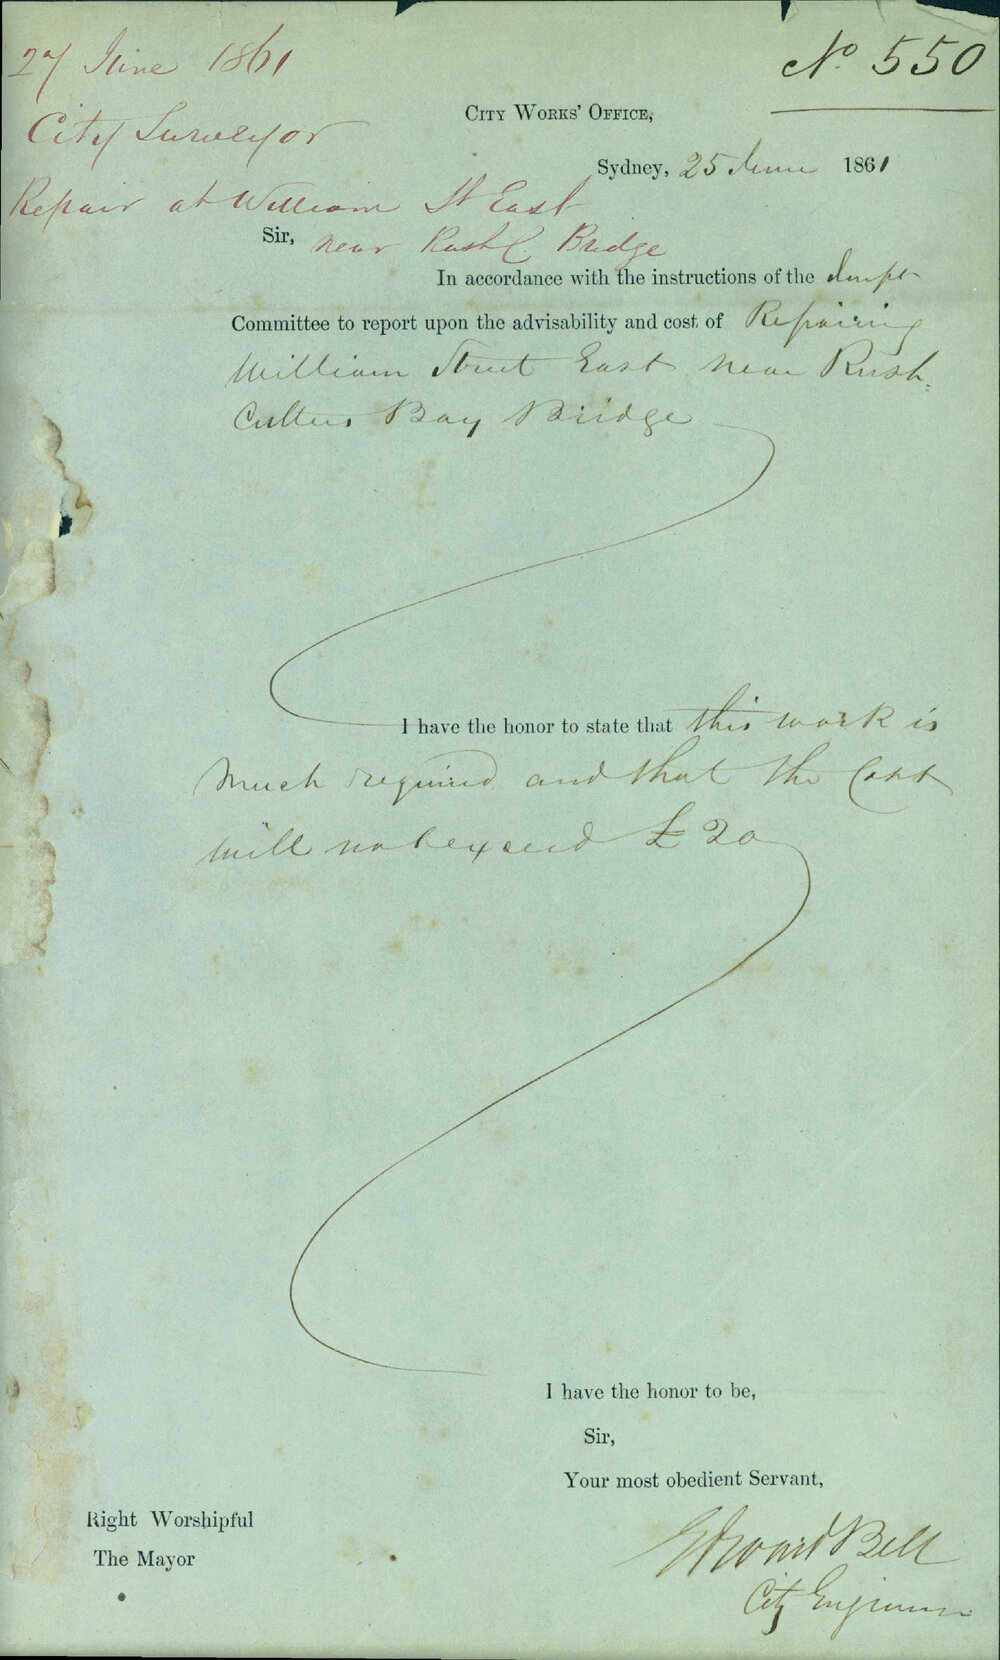 27 June 1861
No. 550
City Surveyor
City Works' Office,
Sydney, 25 June 1861
Repair at William St East
Sir,
near Rush C. Bridge
In accordance with the instructions of the Impt
Committee to report upon the advisability and cost of Repairing
William Street East near Rush-
Cutters Bay Bridge
I have the honor to state that this work is
much required and that the Cost
will not exceed £20
I have the honor to be,
Sir,
Your most obedient Servant,
Right Worshipful
The Mayor
Edward Bell
City Engineer